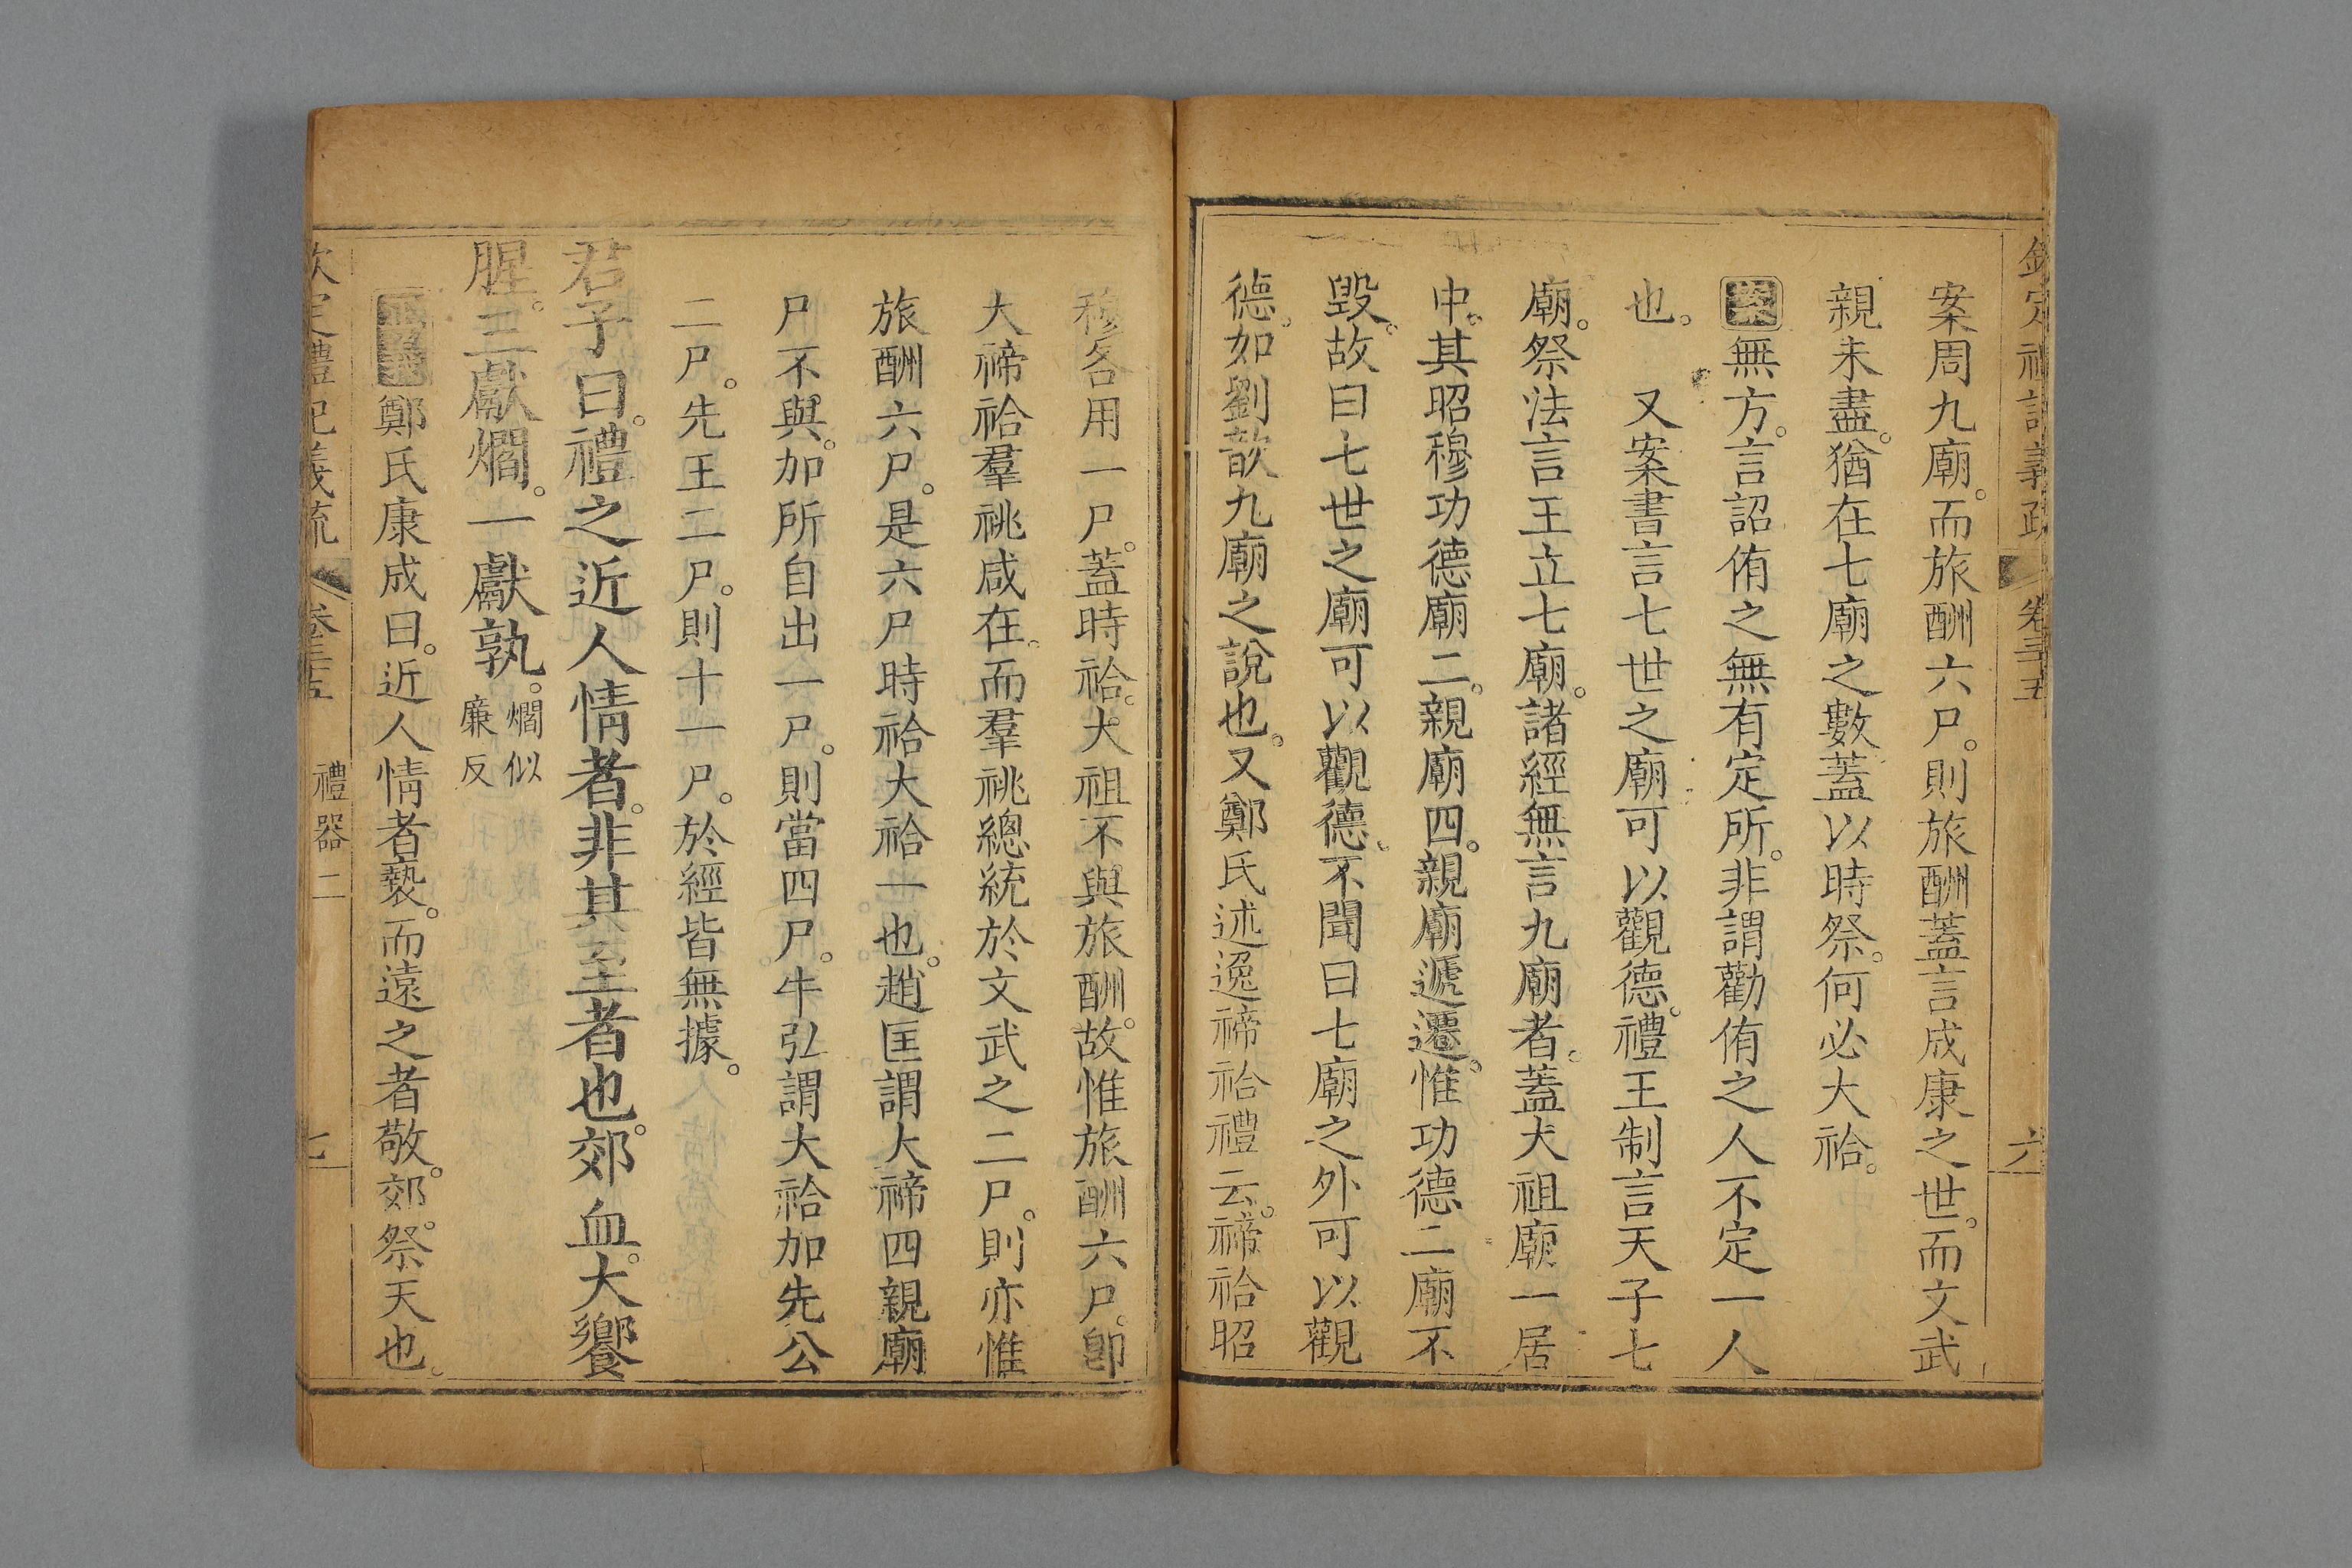 欽定禮記義疏 卷三十五 六
案周九廟。而旅酬六尸。則旅酬蓋言成康之世。而文武
親未盡。猶在七廟之數蓋以時祭。何必大祫。
案無方。言詔侑之無有定所。非謂勸侑之人不定一人
也。 又案書言七世之廟可以觀德。禮王制言天子七
廟。祭法言王立七廟。諸經無言九廟者。蓋大祖廟一居
中。其昭穆功德廟二。親廟四。親廟遞遷。惟功德二廟不
毀。故曰七世之廟可以觀德。不聞曰七廟之外可以觀
德。如劉歆九廟之說也。又鄭氏述逸禘祫禮云。禘祫昭
穆各用一尸。蓋時祫。大祖不與旅酬。故惟旅酬六尸。卽
大禘祫羣祧咸在。而羣祧總統於文武之二尸。則亦惟
旅酬六尸。是六尸時祫大祫一也。趙匡謂大禘四親廟
尸不與。加所自出一尸。則當四尸。牛弘謂大祫加先公
二尸。先王二尸。則十一尸。於經皆無據。
君子曰。禮之近人情者。非其至者也。郊血。大饗
腥。三獻爓。一獻孰。爓似廉反
正義鄭氏康成曰。近人情者褻。而遠之者敬。郊。祭天也。
欽定禮記義疏 卷三十五 禮器二 七